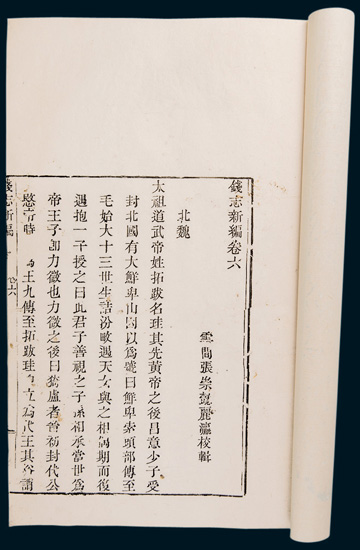 錢志新編卷六
雲間張崇懿麗瀛校輯
北魏
太祖道武帝姓拓跋名珪其先黃帝之後昌意少子受
封北國有大鮮卑山因以為號曰鮮卑索頭部傳至
毛始大十三世生詰汾畋遇天女與之相偶期而復
遇抱一子授之曰此君子善視之子孫相承當世為
帝王子即力微也力微之後曰猗盧者晉初封代公
愍帝時 王九傳至拓跋珪自立為代王其俗謂
錢志新編 卷六